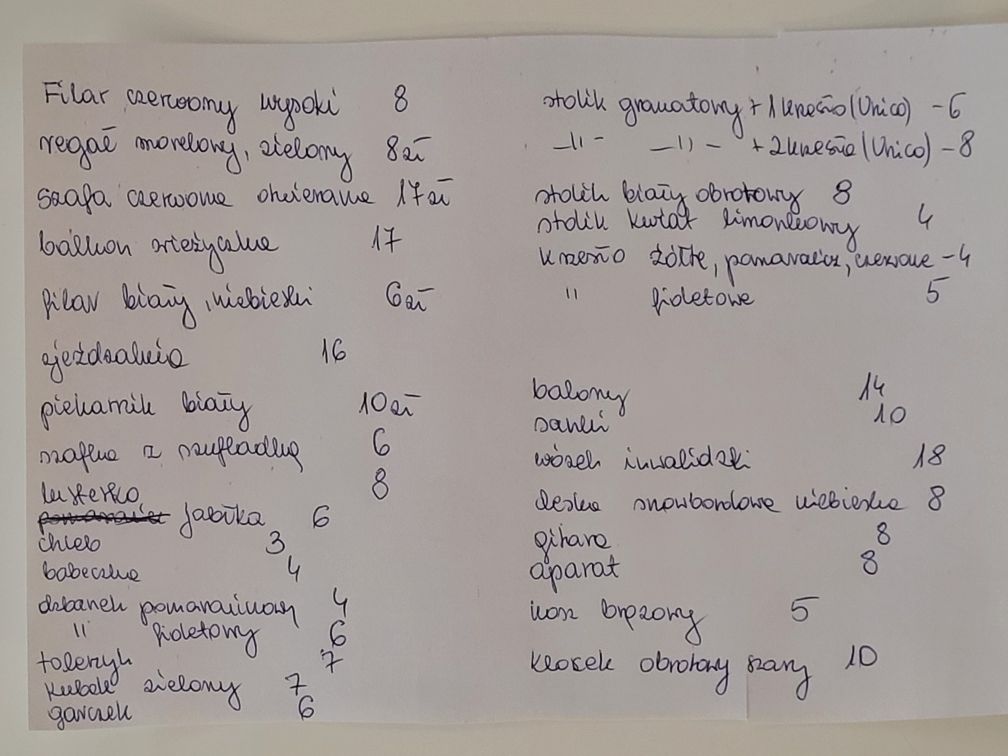 Filar czerwony wysoki 8
regał morelowy, zielony 8zł
szafa czerwona otwierana 17zł
balkon wieżyczka 17
filar biały, niebieski 6zł
zjeżdżalnia 16
piekarnik biały 10zł
szafka z szufladką 6
lusterko 8
pomarańcz jabłka 6
chleb 3
babeczka 4
dzbanek pomarańczowy 4
" fioletowy 6
talerzyk 7
kubek zielony 7
garczek 6
stolik granatowy + 1 krzesło (Unico) - 6
-"- -"- + 2 krzesła (Unico) - 8
stolik biały obrotowy 8
stolik kwiat limonkowy 4
krzesło żółte, pomarańcz, czerwone - 4
" fioletowe 5
balony 14
sanki 10
wózek inwalidzki 18
deska snowbordowa niebieska 8
gitara 8
aparat 8
kosz brązowy 5
klocek obrotowy szary 10